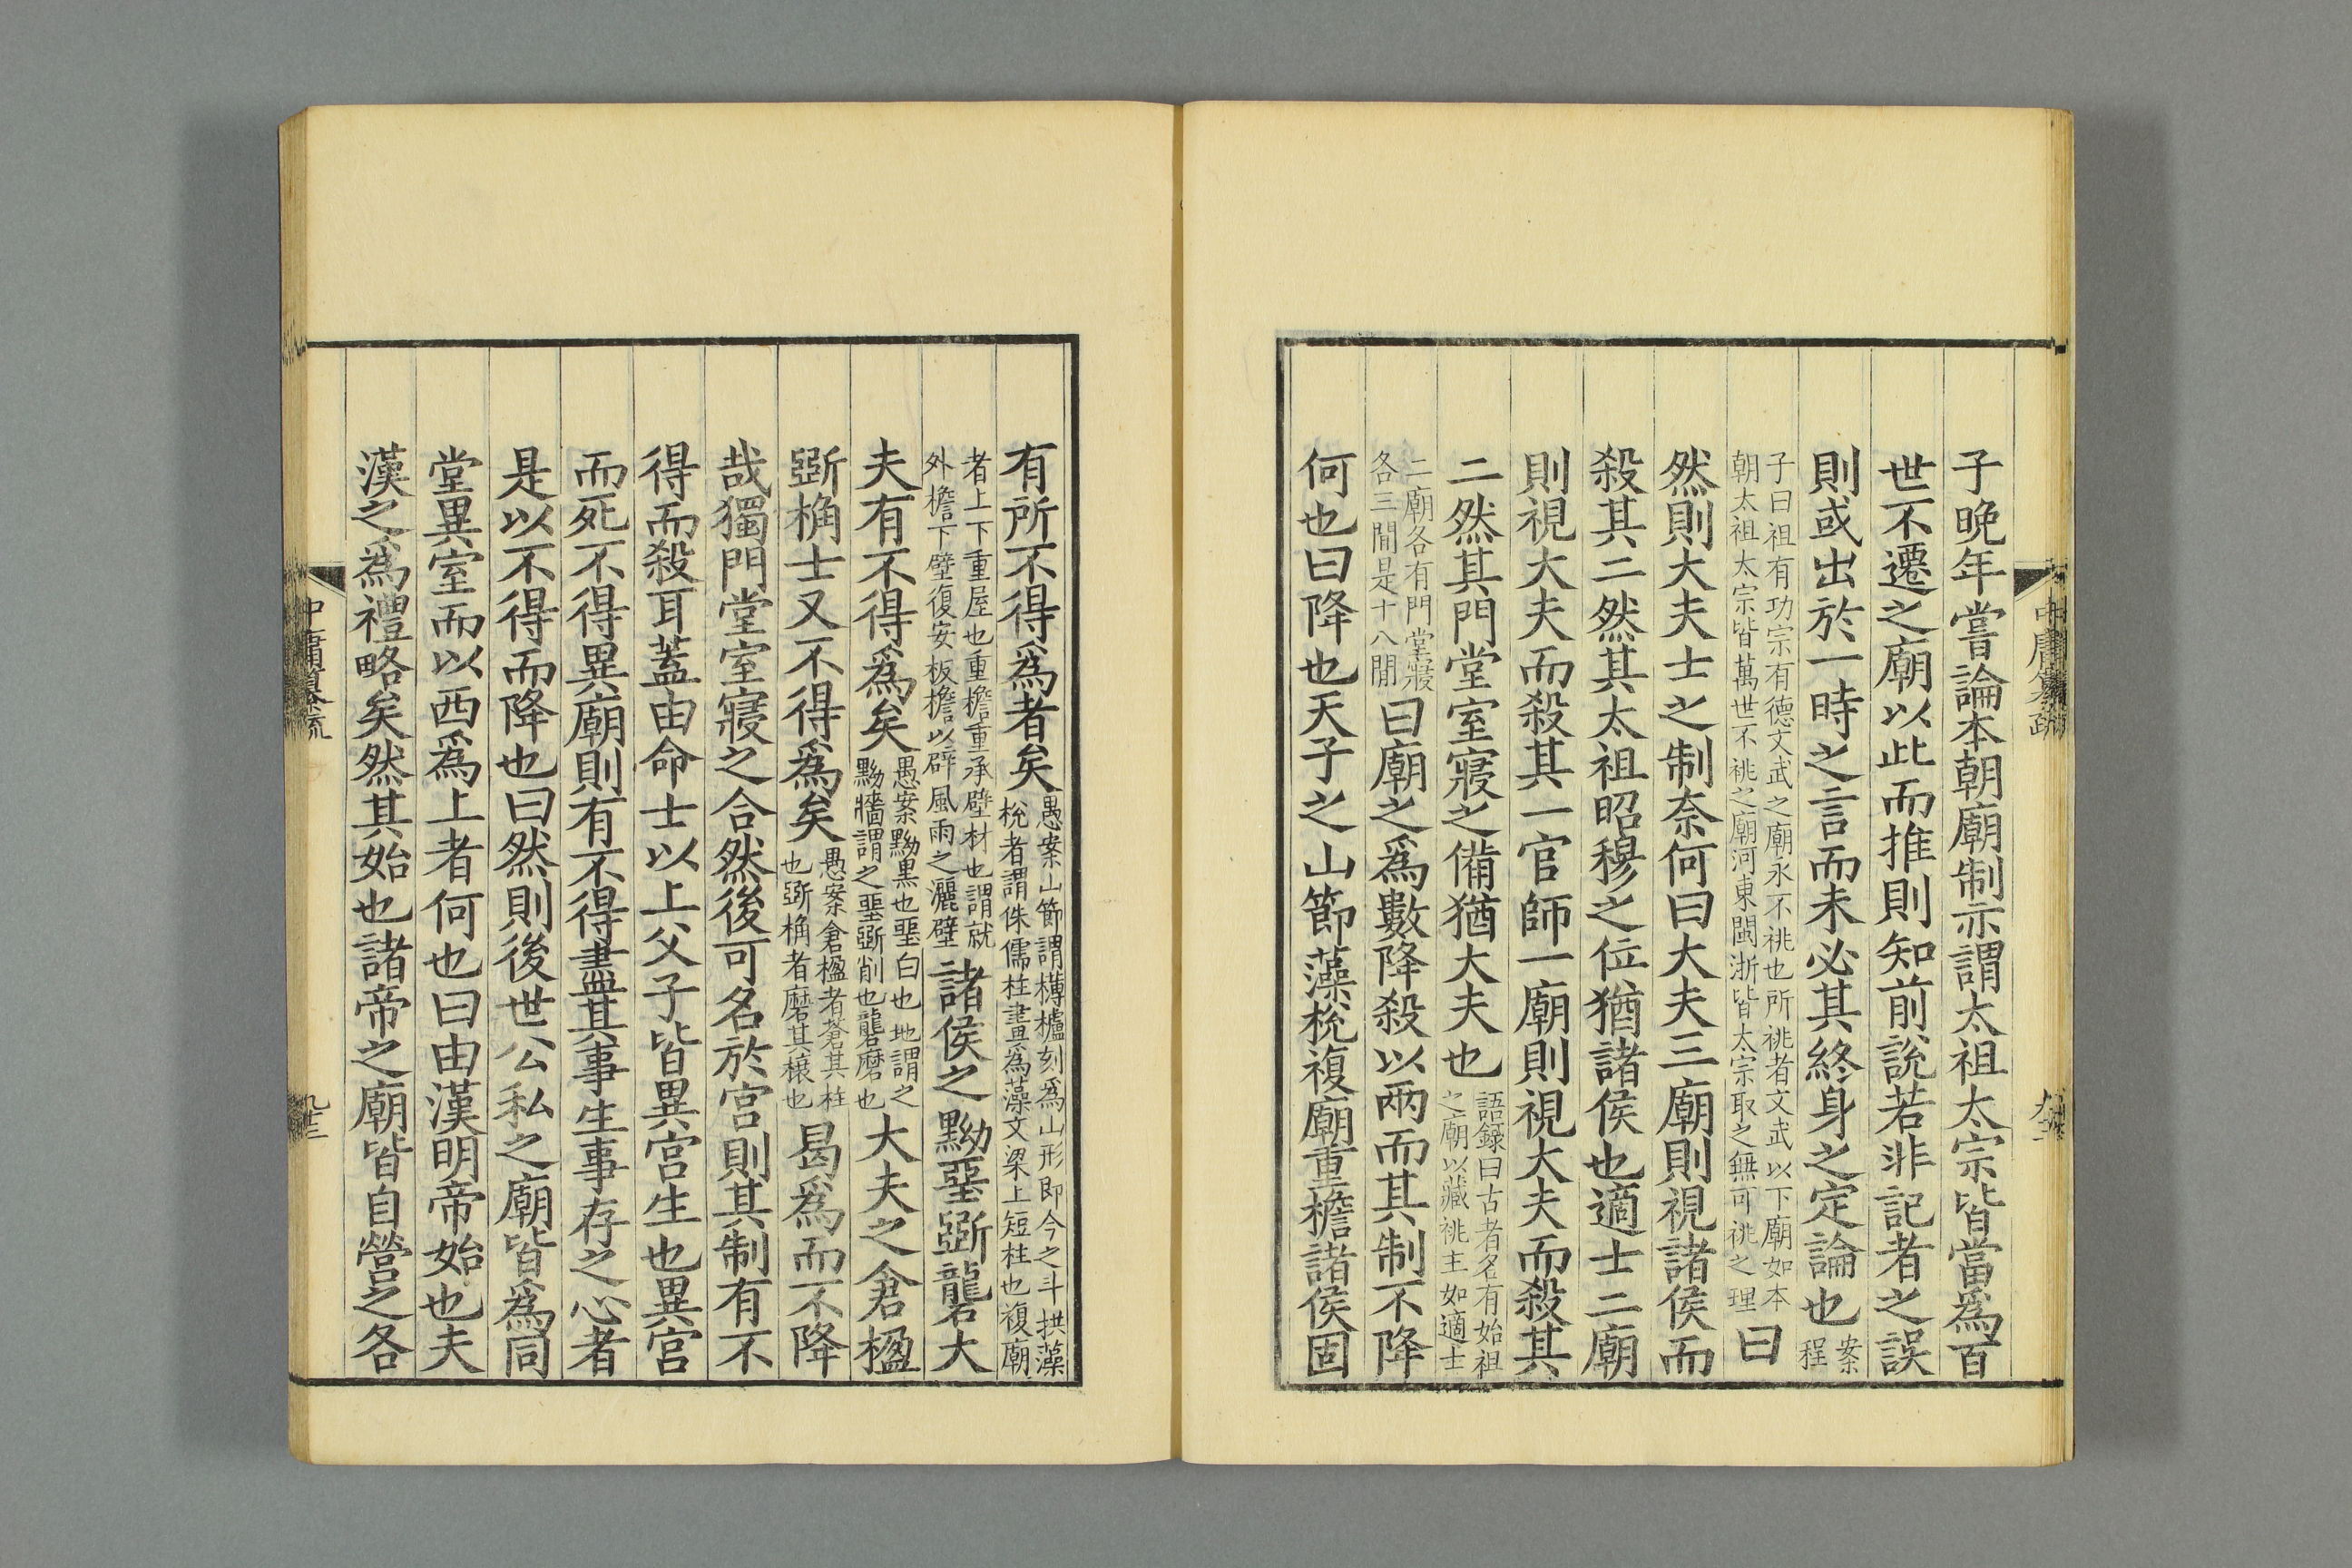 子晚年嘗論本朝廟制亦謂太祖太宗皆當爲百
世不遷之廟以此而推則知前說若非記者之誤
則或出於一時之言而未必其終身之定論也案程
子曰祖有功宗有德文武之廟永不祧也所祧者文武以下廟如本
朝太祖太宗皆萬世不祧之廟河東閩浙皆太宗取之無可祧之理
曰
然則大夫士之制奈何曰大夫三廟則視諸侯而
殺其二然其太祖昭穆之位猶諸侯也適士二廟
則視大夫而殺其一官師一廟則視大夫而殺其
二然其門堂室寢之備猶大夫也
語錄曰古者名有始祖
之廟以藏祧主如適士
二廟各有門堂寢
各三間是十八間
曰廟之爲數降殺以兩而其制不降
何也曰降也天子之山節藻梲複廟重檐諸侯固
中庸纂疏
有所不得爲者矣
愚案山節謂欂櫨刻爲山形即今之斗拱藻
梲者謂侏儒柱畫爲藻文梁上短柱也複廟
者上下重屋也重檐重承壁材也謂就
外檐下壁復安板檐以辟風雨之灑壁
諸侯之黝堊斲礱大
夫有不得爲矣
愚案黝黑也堊白也地謂之
黝牆謂之堊斲削也礱磨也
大夫之倉楹
斲桷士又不得爲矣
愚案倉楹者蒼其柱
也斲桷者磨其榱也
曷爲而不降
哉獨門堂室寢之合然後可名於宮則其制有不
得而殺耳蓋由命士以上父子皆異宮生也異宮
而死不得異廟則有不得盡其事生事存之心者
是以不得而降也曰然則後世公私之廟皆爲同
堂異室而以西爲上者何也曰由漢明帝始也夫
漢之爲禮略矣然其始也諸帝之廟皆自營之各
中庸纂疏
九十三